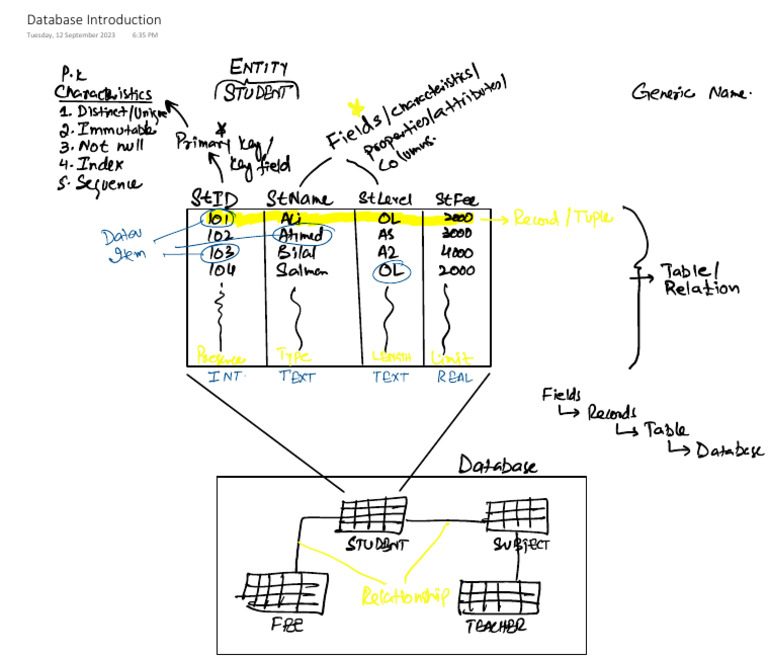 Database Introduction
Tuesday, 12 September 2023 6:35 PM
P.K
Characteristics
1. Distinct/Unique
2. Immutable
3. Not null
4. Index
5. Sequence
ENTITY
STUDENT
Primary Key/
Key field
Fields/characteristics/
properties/attributes/
columns.
Generic Name.
StID StName StLevel StFee
101 Ali OL 2000
Record/Tuple
102 Ahmed AS 3000
103 Bilal A2 4000
104 Salman OL 2000
Data
Item
Table/
Relation
Presence Type LENGTH Limit
INT. TEXT TEXT REAL
Fields
Records
Table
Database
Database
STUDENT SUBJECT
Relationship
FEE TEACHER